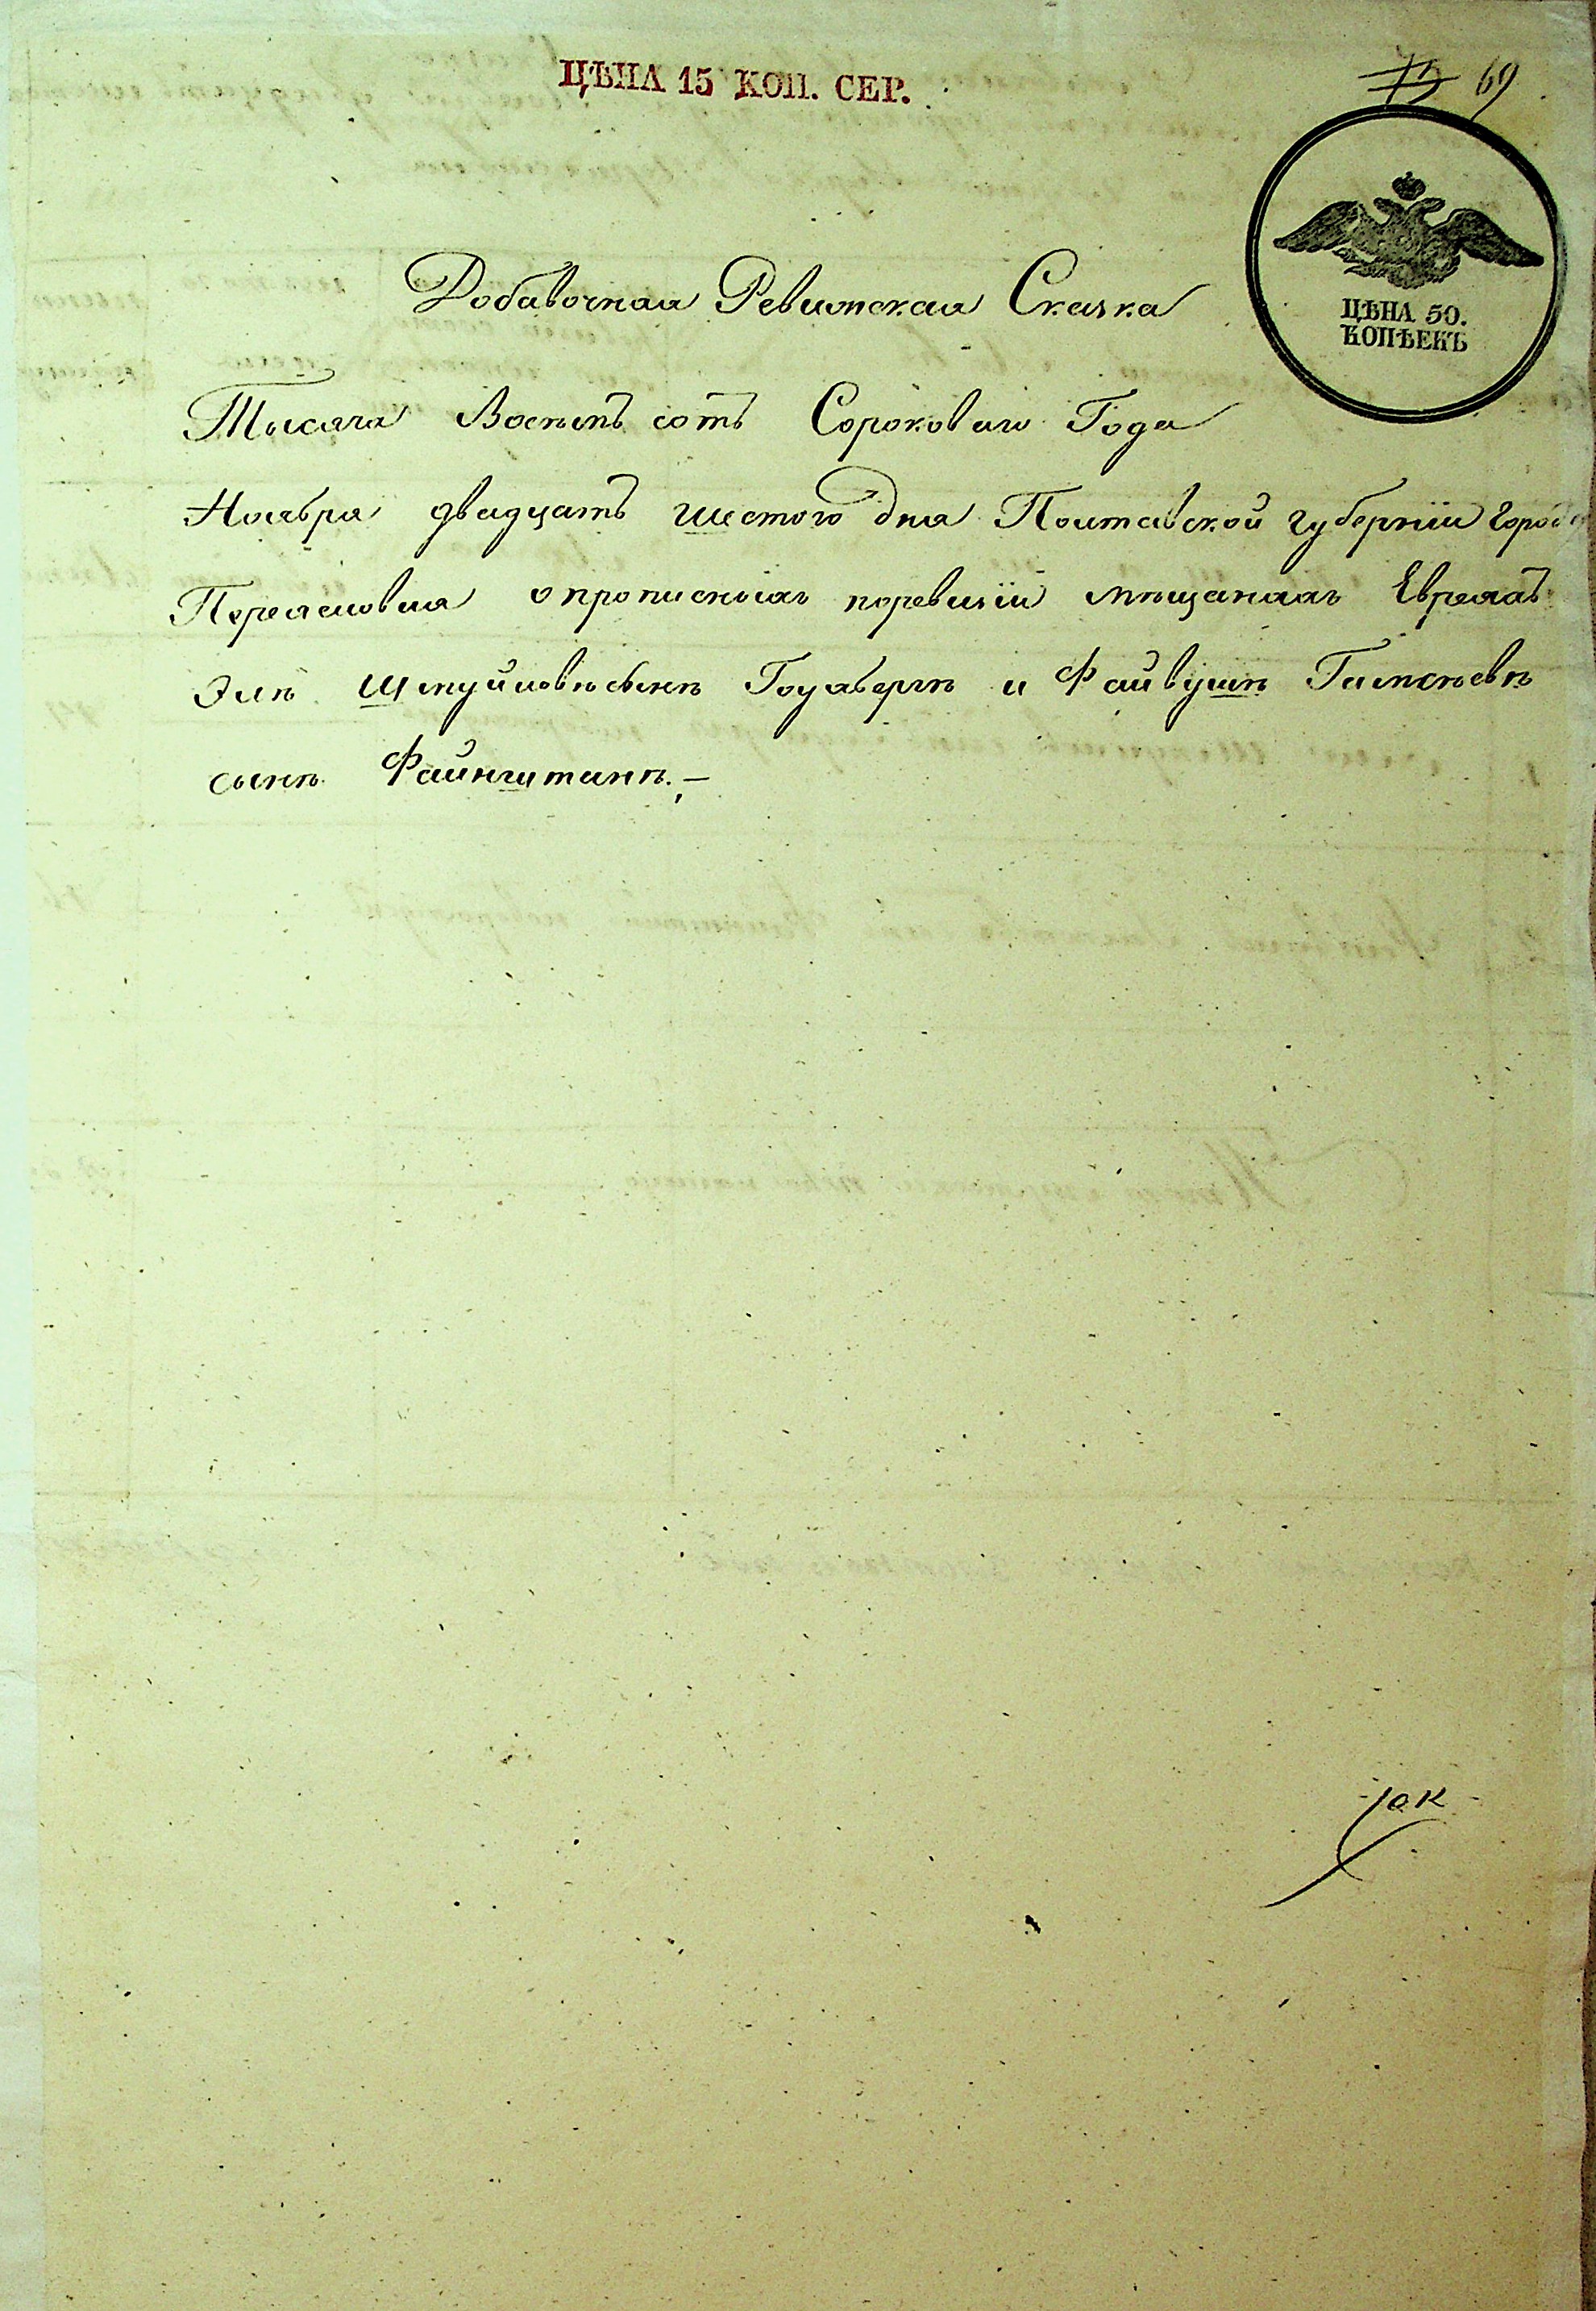 ЦѢНА 15 КОП. СЕР.
73 69
ЦѢНА 50.
КОПѢЕКЪ
Добавочная Ревизская Сказка
Тысяча Восемъ сотъ Сороковаго Года
Ноября двадцать шестого дня Полтавской губернїи города
Переяслова о прописныхъ поревизїи мѣщанахъ Евреяхъ
Элѣ Шмуйловѣ сынѣ Гольбергѣ и Файвушѣ
сынѣ Файнштинѣ.